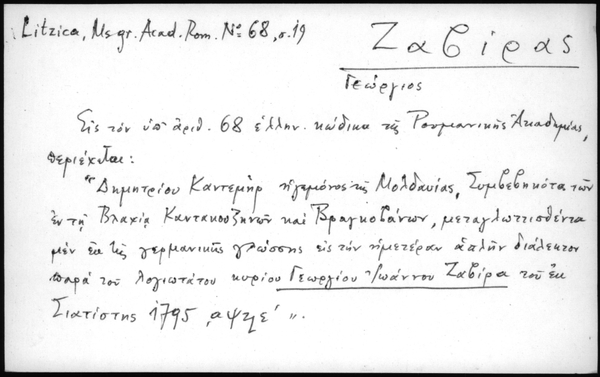 Litzica, Ms gr. Acad. Rom. Nº 68, σ. 19
Ζαβίρας
Γεώργιος
Εἰς τὸν ὑπ' ἀριθ. 68 ἑλλην. κώδικα τῆς Ρουμανικῆς Ἀκαδημίας,
περιέχεται:
"Δημητρίου Καντεμὴρ ἡγεμόνος τῆς Μολδαυίας, Συμβεβηκότα τῶν
ἐν τῇ Βλαχίᾳ Καντακουζηνῶν καὶ Βραγκοβάνων, μεταγλωττισθέντα
μὲν ἐκ τῆς γερμανικῆς γλώσσης εἰς τὴν ἡμετέραν ἁπλῆν διάλεκτον
παρὰ τοῦ λογιωτάτου κυρίου Γεωργίου Ἰωάννου Ζαβίρα τοῦ ἐκ
Σιατίστης 1795 ,αψϟε' ".